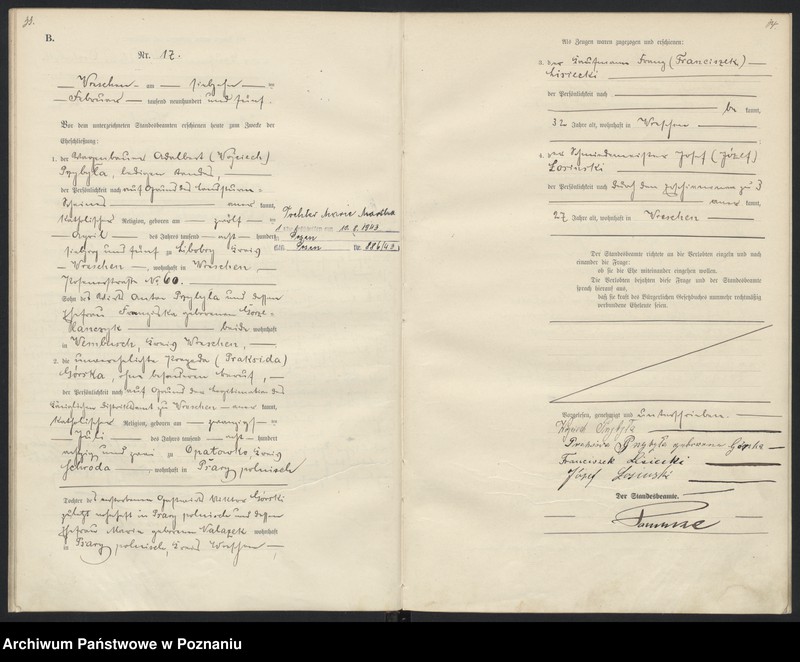 B.
Nr. 17.
Wreschen am siebzehn ten
Februar tausend neunhundert und fünf.
Vor dem unterzeichneten Standesbeamten erschienen heute zum Zwecke der
Eheschließung:
1. der Wagenbauer Adalbert (Wojciech)
Przybyla, ledigen Standes,
der Persönlichkeit nach auf Grund des Landsturm-
Scheines aner kannt,
katholischer Religion, geboren am zwölf ten
April des Jahres tausend acht hundert
siebzig und fünf zu Kreis
Wreschen, wohnhaft in Wreschen,
Posenerstraße No 60.
Sohn des Wirts Anton Przybyla und dessen
Ehefrau Franziska geborenen
beide wohnhaft
in Kreis Wreschen,
2. die unverehelichte Prazeda (Praksida)
Górska, ohne besonderen Beruf,
der Persönlichkeit nach auf Grund der Legitimation des
Königlichen Distriktsamt zu Wreschen aner kannt,
katholischer Religion, geboren am zwanzigs ten
Juli des Jahres tausend acht hundert
achtzig und zwei zu Opatowko, Kreis
Schroda, wohnhaft in polnisch
Tochter des verstorbenen Gastwirts Górski
zuletzt wohnhaft in polnisch und dessen
Ehefrau Maria geborenen wohnhaft
in polnisch, Kreis Wreschen
Tochter Marie Martha
1943
Posen
Posen Nr. 886/43
Als Zeugen waren zugezogen und erschienen:
3. der Kaufmann Franz (Franciszek)
Lisiecki
der Persönlichkeit nach
be kannt,
32 Jahre alt, wohnhaft in Wreschen
4. der Schmiedemeister Josef (Józef)
Losinski
der Persönlichkeit nach durch den zu 3
aner kannt,
27 Jahre alt, wohnhaft in Wreschen
Der Standesbeamte richtete an die Verlobten einzeln und nach
einander die Frage:
ob sie die Ehe miteinander eingehen wollen.
Die Verlobten bejahten diese Frage und der Standesbeamte
sprach hierauf aus,
daß sie kraft des Bürgerlichen Gesetzbuches nunmehr rechtmäßig
verbundene Eheleute seien.
Vorgelesen, genehmigt und unterschrieben.
Przybyla
Przybyla geborene Górska
Franciszek Lisiecki
Józef Losinski
Der Standesbeamte.
Archiwum Państwowe w Poznaniu